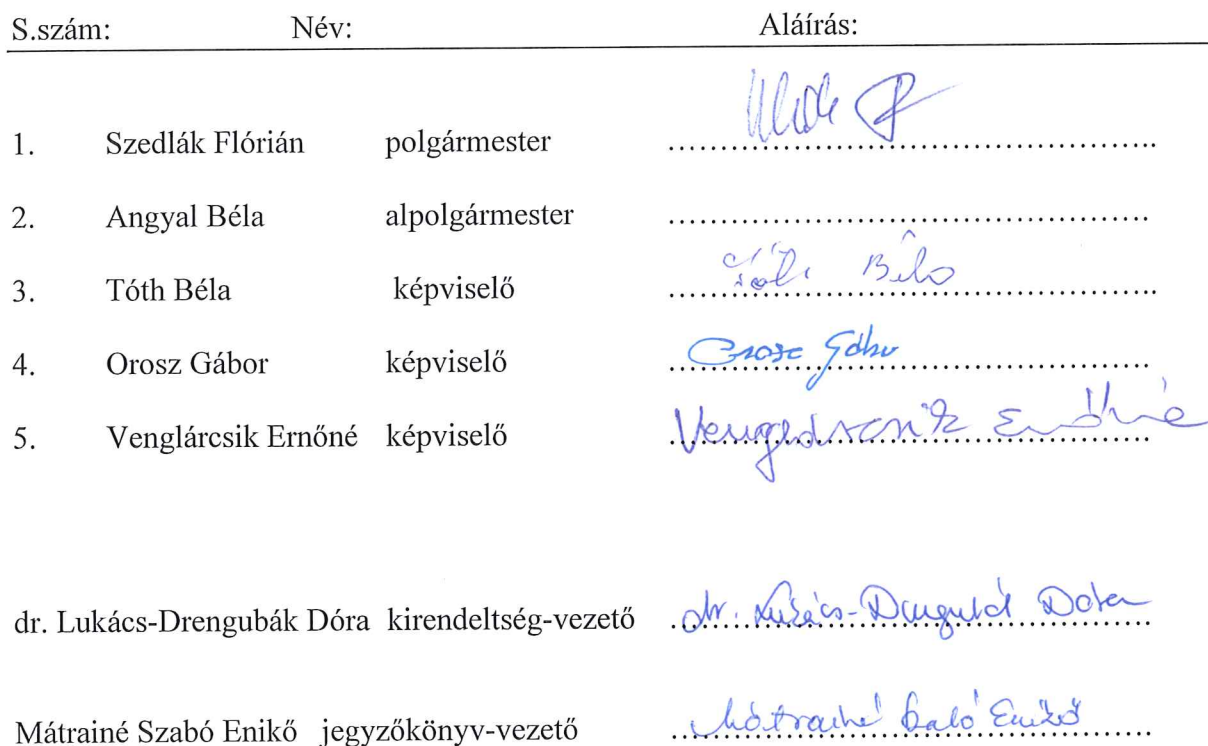 S.szám: Név: Aláírás:
1. Szedlák Flórián polgármester ……………………………………………..
2. Angyal Béla alpolgármester …………………………………………….
3. Tóth Béla képviselő Tóth Béla
4. Orosz Gábor képviselő Orosz Gábor
5. Venglárcsik Ernőné képviselő Venglárcsik Ernőné
dr. Lukács-Drengubák Dóra kirendeltség-vezető dr. Lukács-Drengubák Dóra
Mátrainé Szabó Enikő jegyzőkönyv-vezető Mátrainé Szabó Enikő